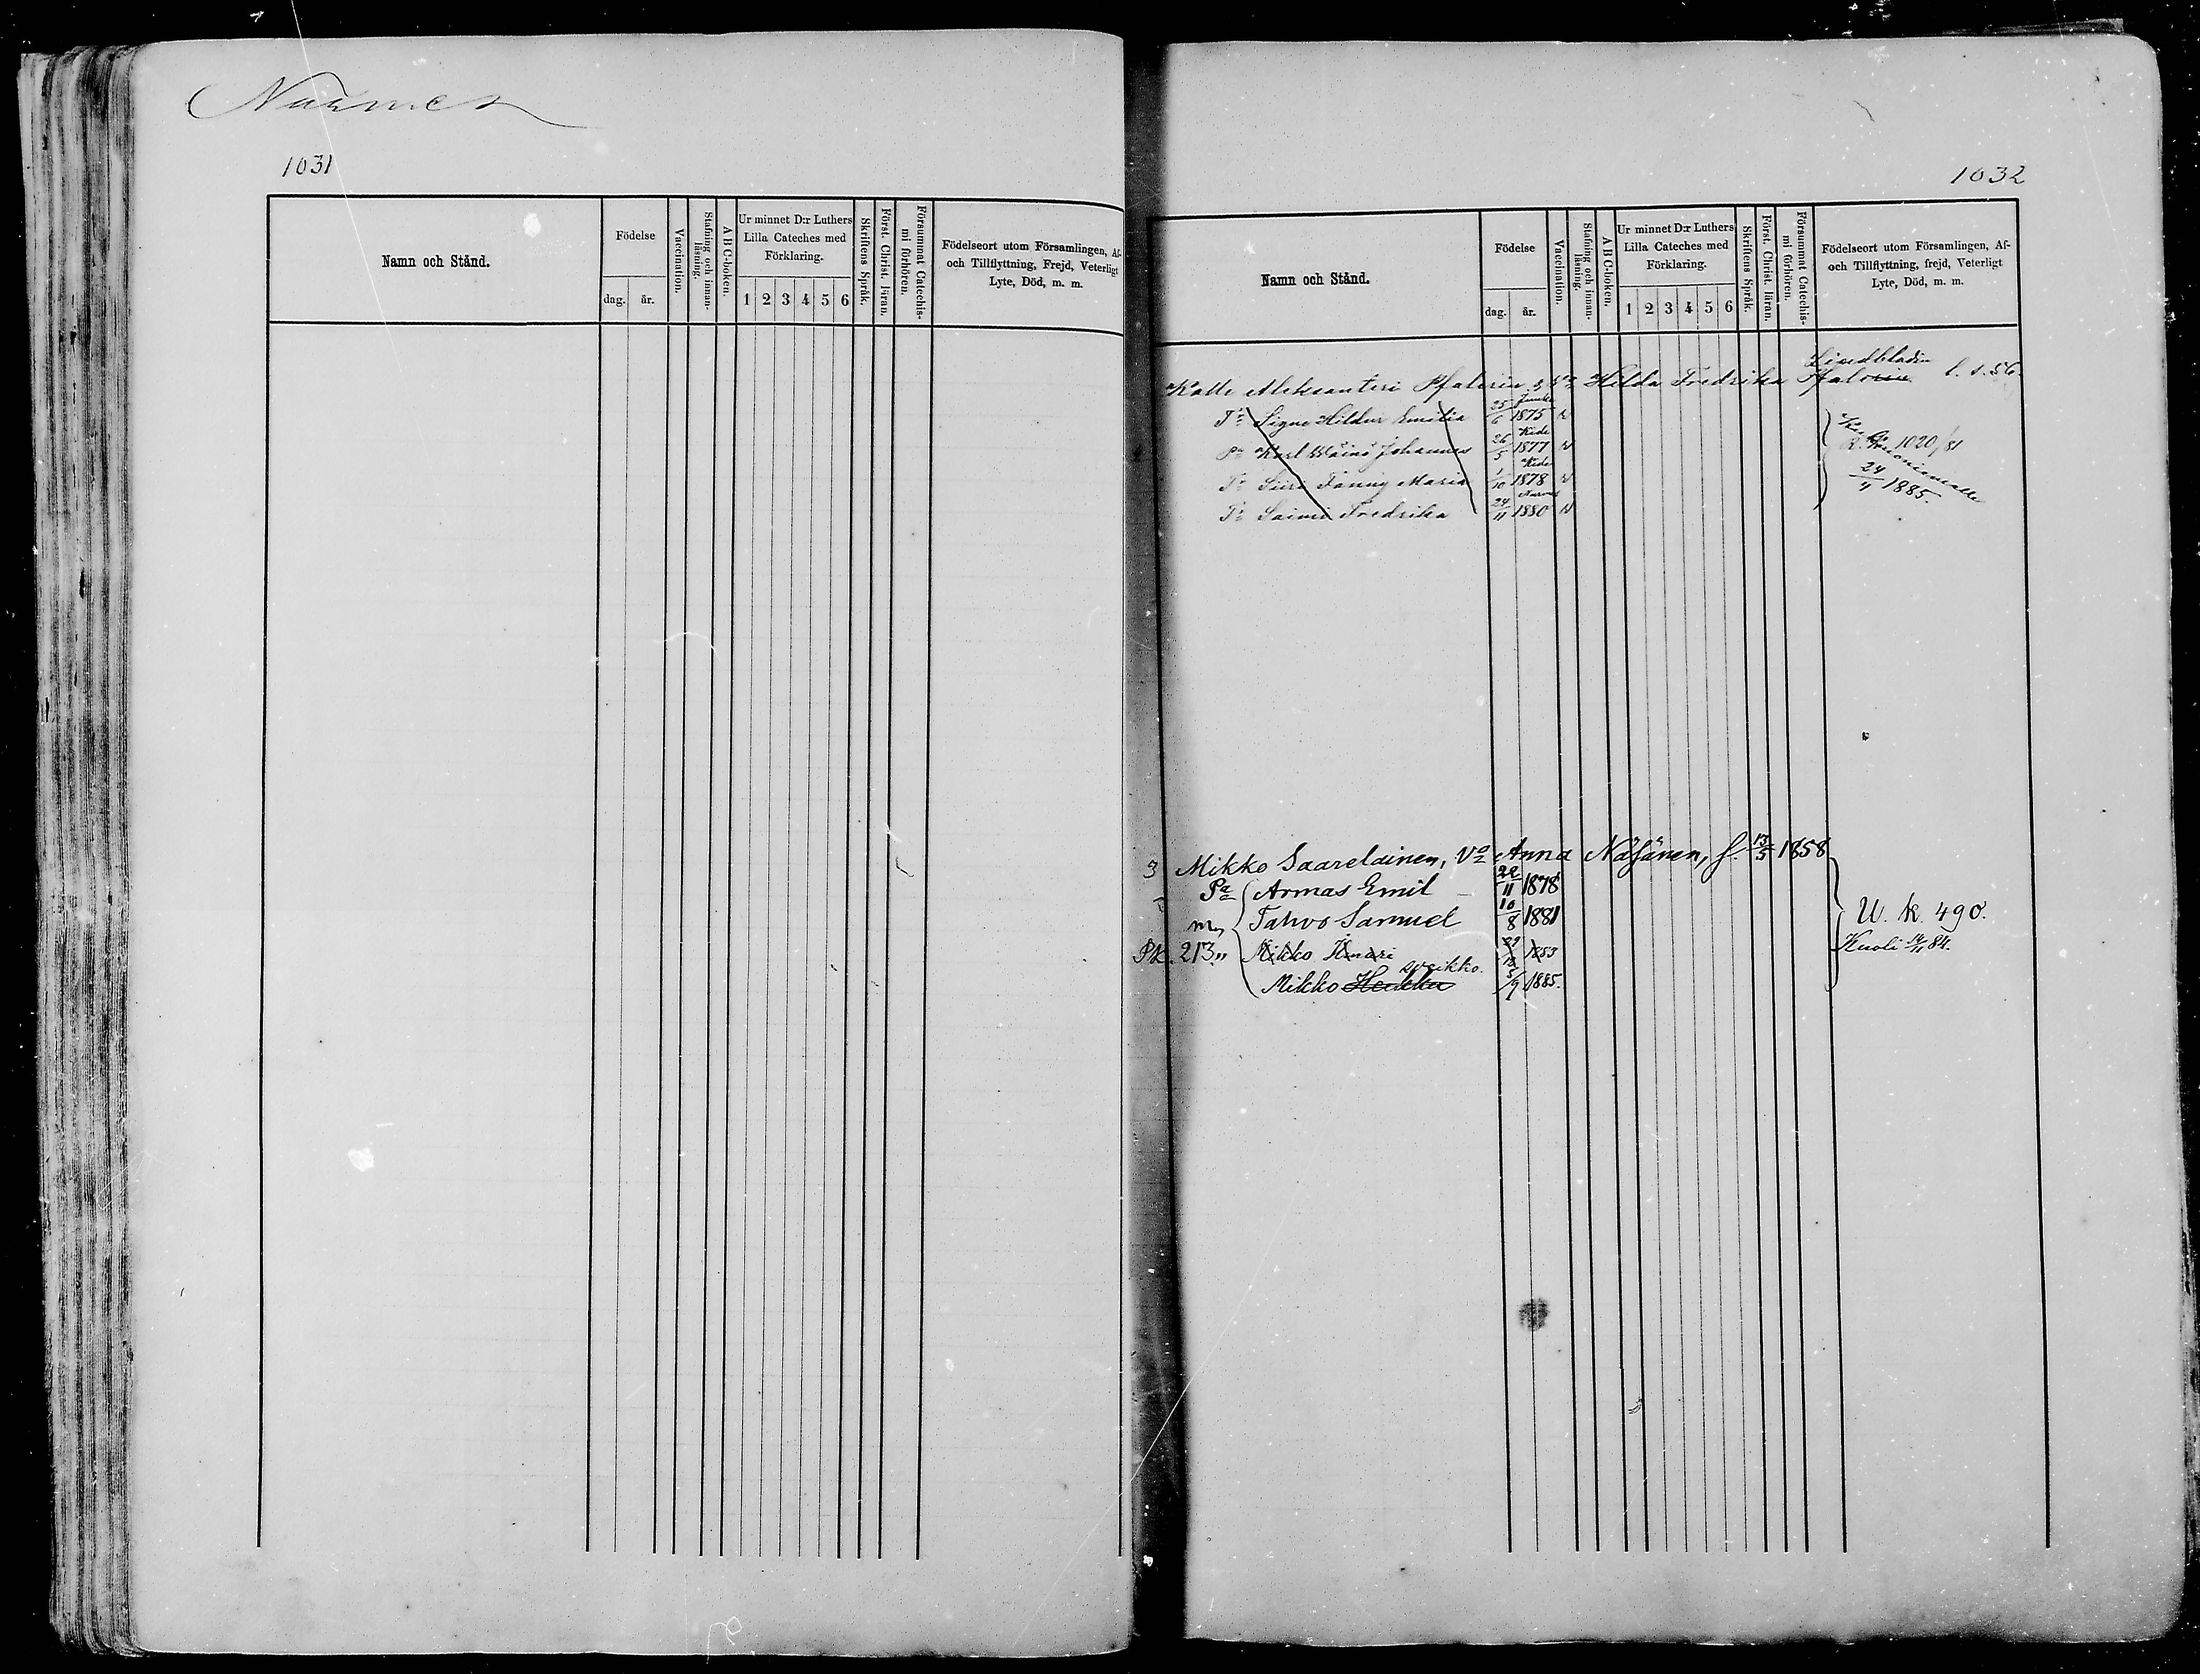 Nurmes
1031
Namn och Stånd.
Födelse
dag. år.
Vaccination.
Stafning och innan-läsning.
ABC-boken.
Ur minnet D:r Luthers
Lilla Cateches med
Förklaring.
1 2 3 4 5 6
Skriftens Språk.
Först. Christ. läran.
Försummat Catechis-mi förhören.
Födelseort utom Församlingen, Af-
och Tillflyttning, Frejd, Veterligt
Lyte, Död, m. m.
1032
Namn och Stånd.
Födelse
dag. år.
Vaccination.
Stafning och innan-läsning.
ABC-boken.
Ur minnet D:r Luthers
Lilla Cateches med
Förklaring.
1 2 3 4 5 6
Skriftens Språk.
Först. Christ. läran.
Försummat Catechis-mi förhören.
Födelseort utom Församlingen, Af-
och Tillflyttning, frejd, Veterligt
Lyte, Död, m. m.
Lindbladin
Kalle Aleksanteri Pfalerin Hilda Fredrika Pfalerin l. s. 56
Tr Signe Hildur Emilia 25/6 1875
Kide
Pa Karl Wäinö Johannes 26/5 1877 1020/81
Kide
Tr Siiri Fanny Maria 1/10 1878 24/4 1885.
Nurmes
Tr Saimi Fredrika 24/11 1880
3 Mikko Saarelainen, Vo Anna Näsänen, s. 13/5 1858
Pa Armas Emil 22/11 1878
m, Tahvo Samuel 10/8 1881 U. k. 490.
Pk. 213 „ Mikko Inari 29/12 1883 Kuoli 14/11 84.
Mikko Heikki 5/9 1885.